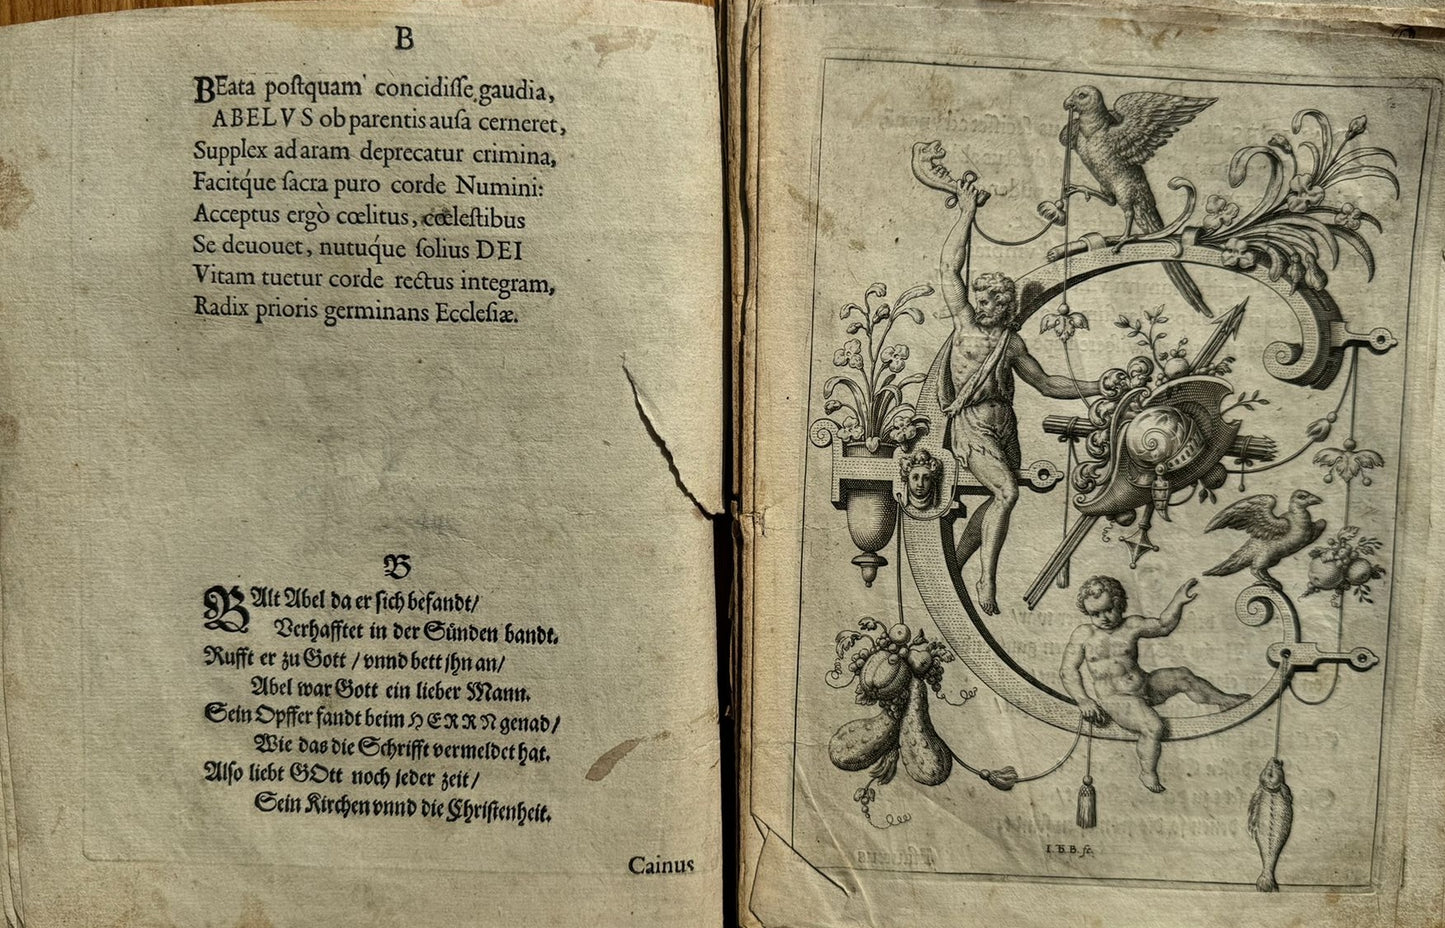 B
BEata poſtquam concidiſſe gaudia,
ABELVS ob parentis auſa cerneret,
Supplex ad aram deprecatur crimina,
Facitq́ue ſacra puro corde Numini:
Acceptus ergò cœlitus, cœleſtibus
Se deuouet, nutuq́ue ſolius DEI
Vitam tuetur corde rectus integram,
Radix prioris germinans Eccleſiæ.
B
BAlt Abel da er ſich befandt/
Verhafftet in der Sünden bandt.
Rufft er zu Gott / vnnd bett jhn an/
Abel war Gott ein lieber Mann.
Sein Opffer fandt beim HERRN genad/
Wie das die Schrifft vermeldet hat.
Alſo liebt GOtt noch jeder zeit/
Sein Kirchen vnnd die Chriſtenheit.
Cainus
I. B. B. fe.